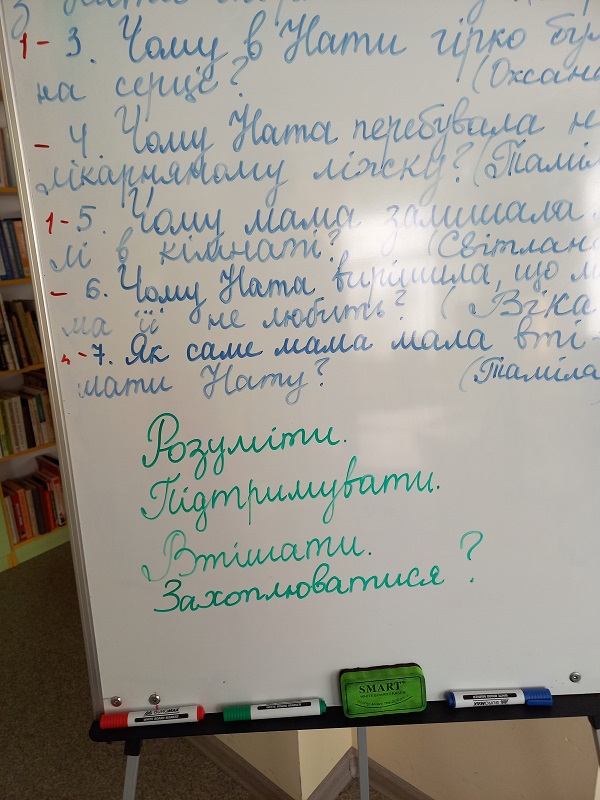 1- 3. Чому в Нати гірко бул
на серце? (Оксана
- 4. Чому Ната перебувала н
лікарняному ліжку? (Таміл
1- 5. Чому мама залишала
лі в кімнаті? (Світлан
- 6. Чому Ната вирішила, що м
ма її не любить? (Віка
4- 7. Як саме мама мала вті-
мати Нату? (Таміла
Розуміти.
Підтримувати.
Втішати.
Захоплюватися ?
SMART
BUROMAX
BUROMAX